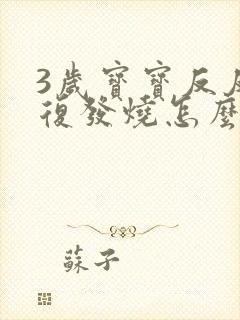 3歲寶寶反反
復發燒怎麼
蘇子